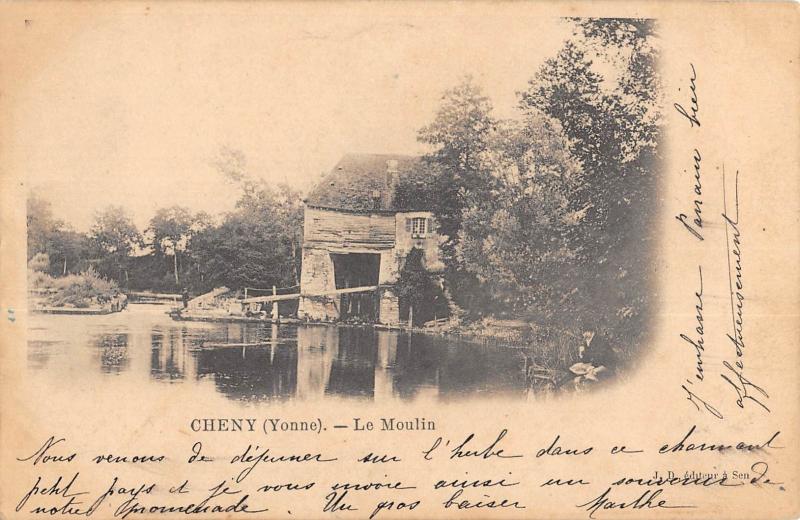 CHENY (Yonne). — Le Moulin
Nous venons de déjeuner sur l'herbe dans ce charmant
petit pays et je vous envoie ainsi un souvenir de
notre promenade. Un gros baiser Marthe
J. D. éditeur à Sens
J'embrasse Parrain bien
affectueusement